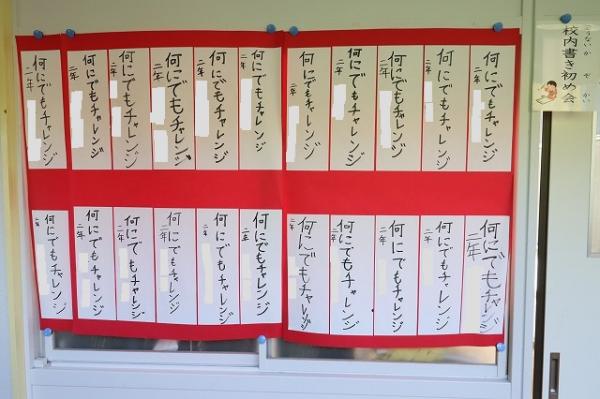 校内書き初め会
こうないか ぞ かい
何にでもチャレンジ
二年
何にでもチャレンジ
二年
何にでもチャレンジ
二年
何にでもチャレンジ
二年
何にでもチャレンジ
二年
何にでもチャレンジ
二年
何にでもチャレンジ
二年
何にでもチャレンジ
二年
何にでもチャレンジ
二年
何にでもチャレンジ
二年
何にでもチャレンジ
二年
何にでもチャレンジ
二年
何にでもチャレンジ
二年
何にでもチャレンジ
二年
何にでもチャレンジ
二年
何にでもチャレンジ
二年
何にでもチャレンジ
二年
何にでもチャレンジ
二年
何にでもチャレンジ
二年
何にでもチャレンジ
二年
何にでもチャレンジ
二年
何にでもチャレンジ
二年